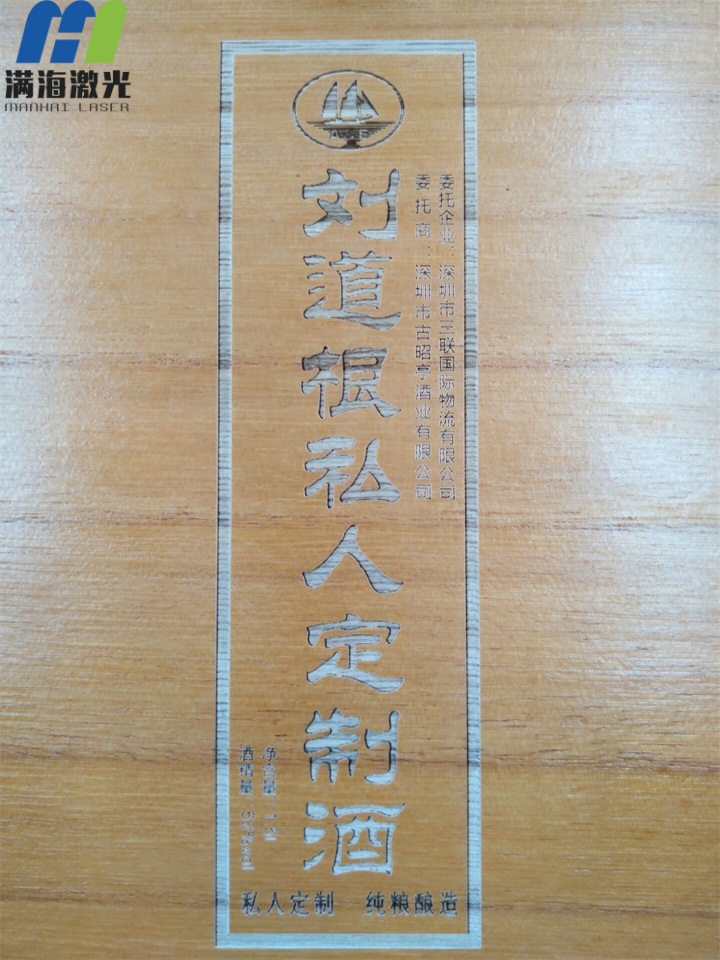 满海激光
MANHAI LASER
委托企业：深圳市三联国际物流有限公司
委托商：深圳市古昭亭酒业有限公司
刘道根私人定制酒
净含量：
酒精量：
私人定制 纯粮酿造